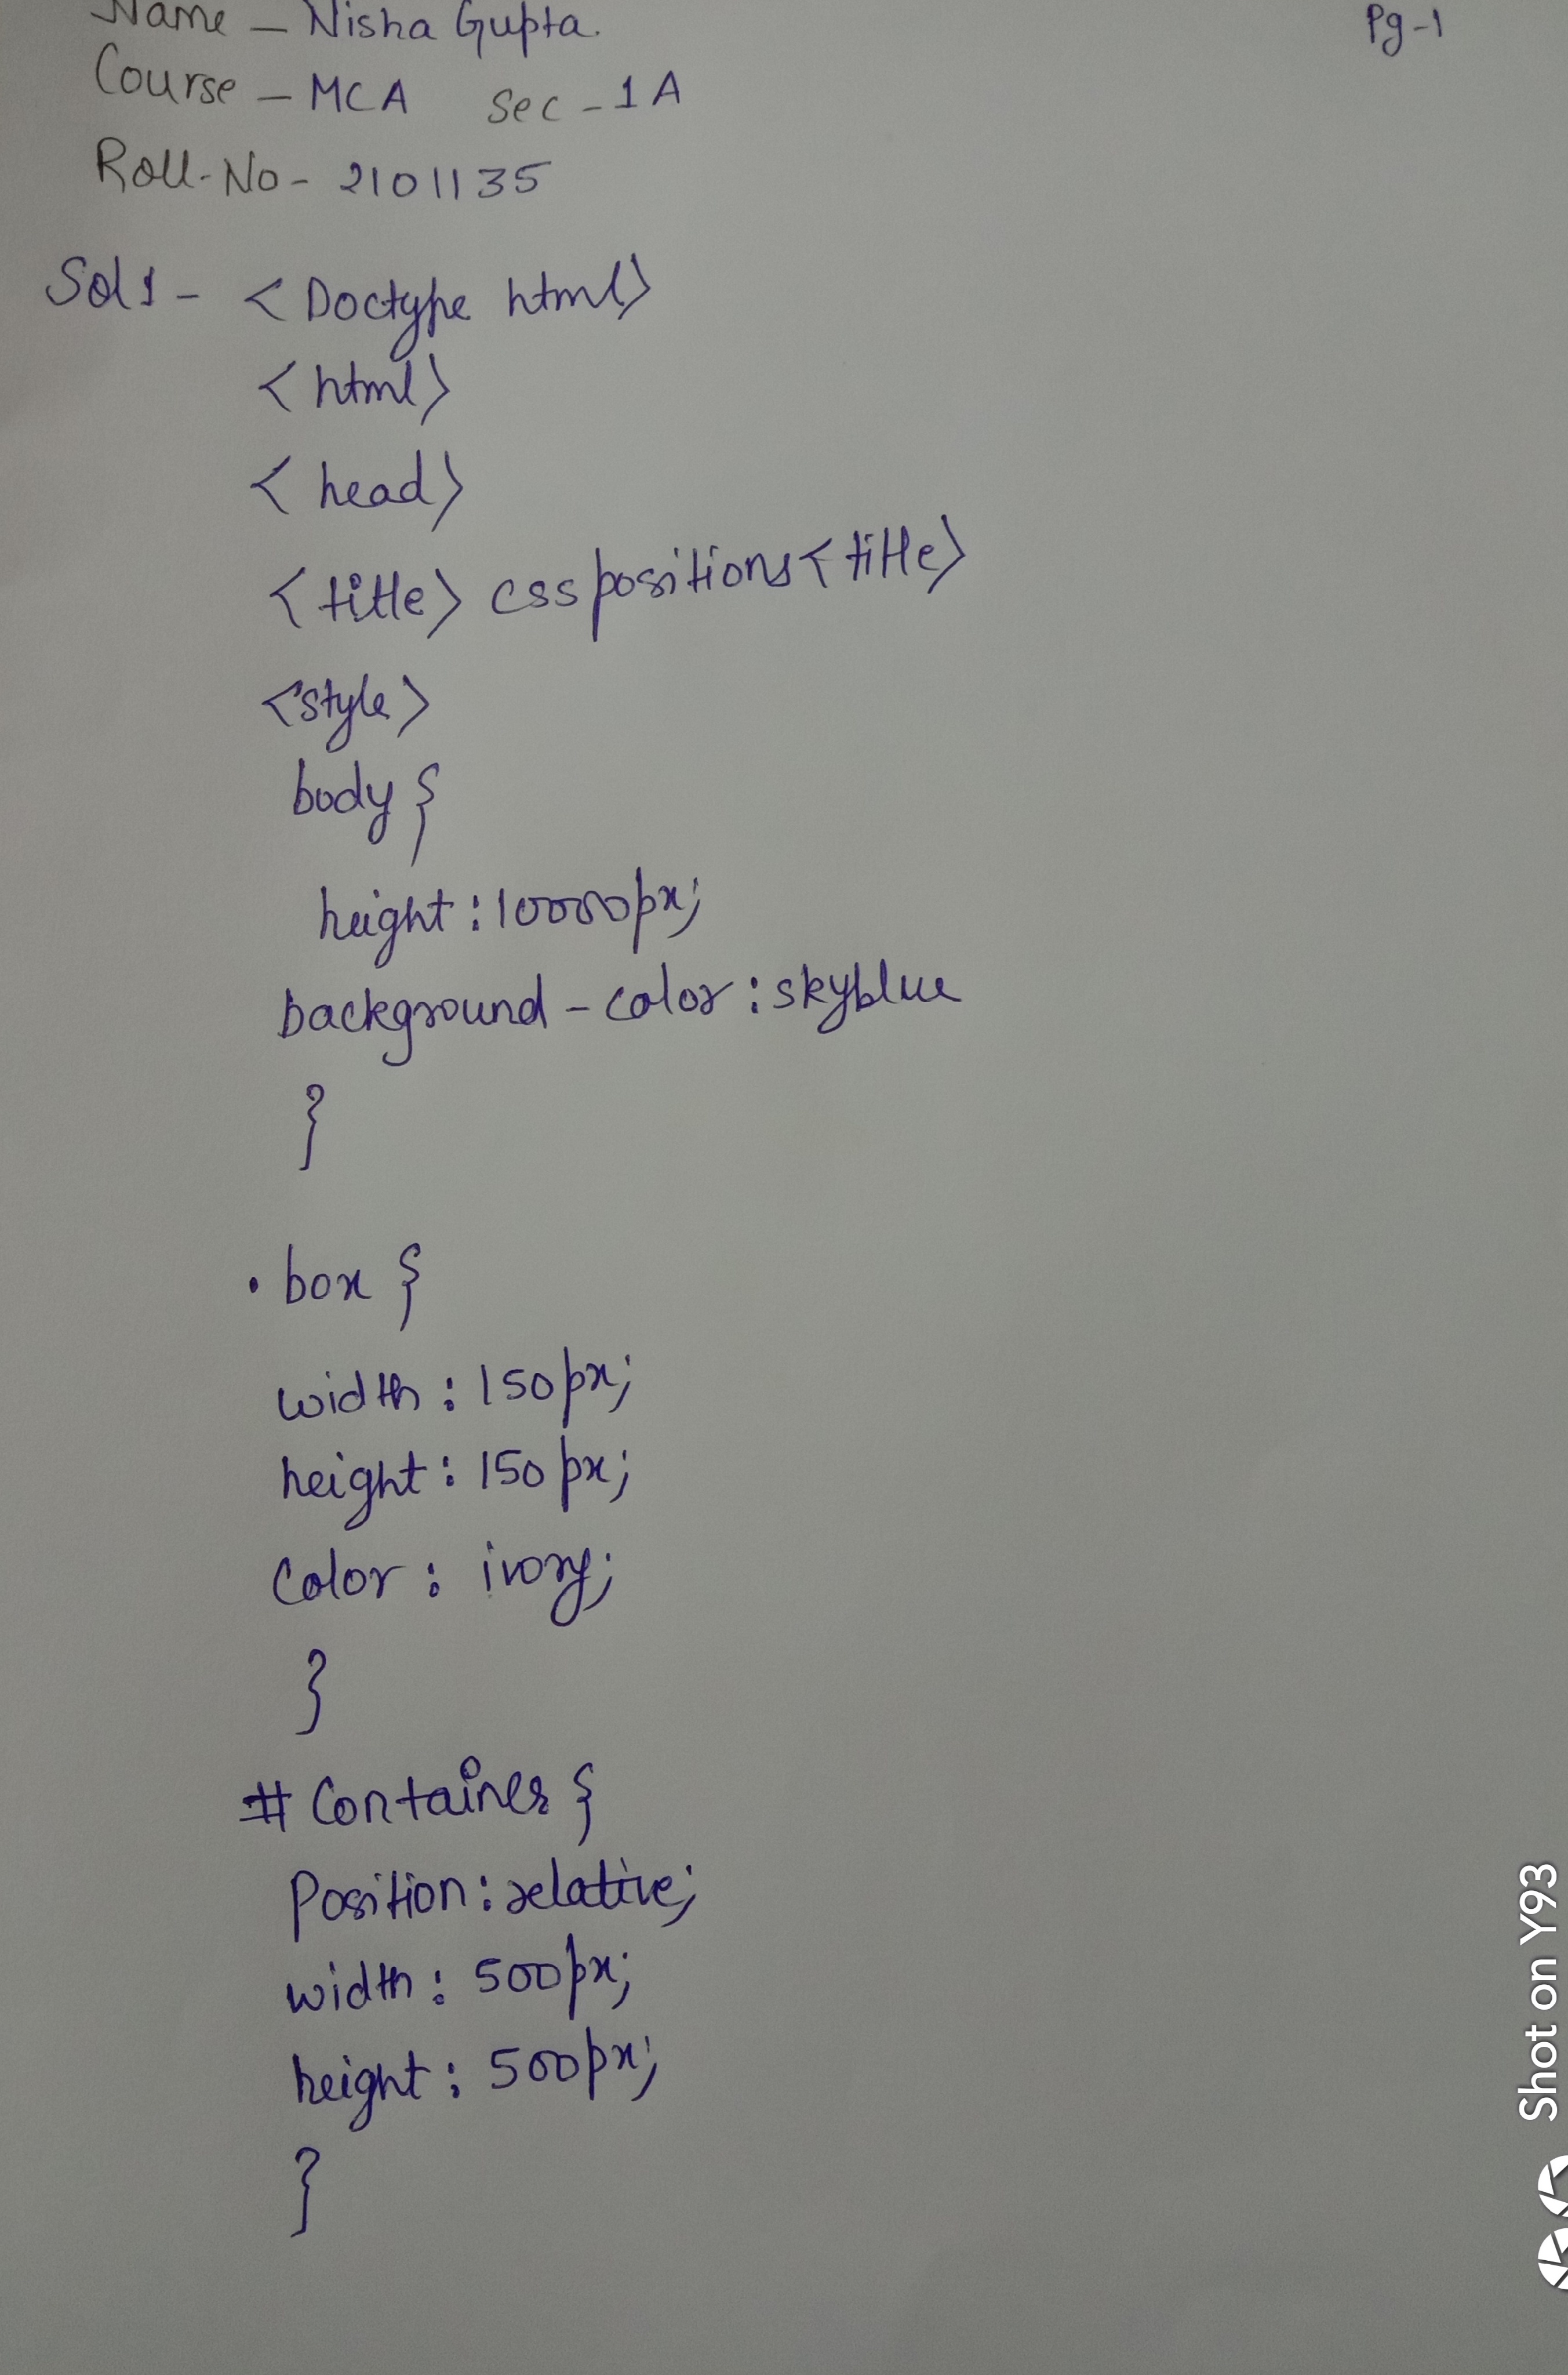 Name - Nisha Gupta.
Pg-1
Course - MCA Sec - 1A
Roll-No- 2101135
Sol1- <Doctype html>
<html>
<head>
<title> css positions<title>
<style>
body {
height : 10000px;
background - color : skyblue
}
. box {
width : 150px;
height : 150px;
Color : ivory;
}
# Container {
Position : relative;
width : 500px;
height : 500px;
}
Shot on Y93